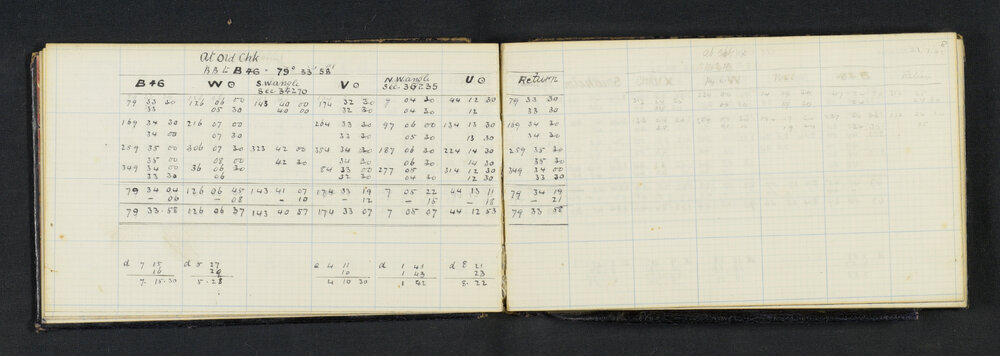 At Old Chk
BB to B46 - 79° 33' 58"
B46 W⊙ S.Wangle Sec 34270 V⊙ N.Wangle Sec 36235 U⊙ Return
79 33 30 126 06 00 143 40 00 174 32 30 7 04 30 44 12 30 79 33 30
33 05 30 40 00 32 30 04 30 12 33 30
169 34 30 216 07 00 264 33 30 97 06 00 134 13 30 169 34 30
34 00 07 30 32 30 05 30 13 30 34 30
259 35 00 306 07 30 323 42 00 354 34 30 187 06 30 224 14 30 259 35 30
35 00 08 00 42 30 34 30 06 30 14 30 35 30
349 34 00 36 06 30 84 33 00 277 05 314 12 30 349 34 00
33 30 06 32 30 04 30 12 30 33 30
79 34 04 126 06 45 143 41 07 174 33 19 7 05 22 44 13 11 79 34 19
- 06 - 08 - 10 - 12 - 15 - 18 - 21
79 33 58 126 06 37 143 40 57 174 33 07 7 05 07 44 12 53 79 33 58
d 7 15 d 5 27 d 4 11 d 1 41 d 8 21
16 29 10 1 43 23
7. 15.30 5.28 4 10 30 1 42 8.22
8